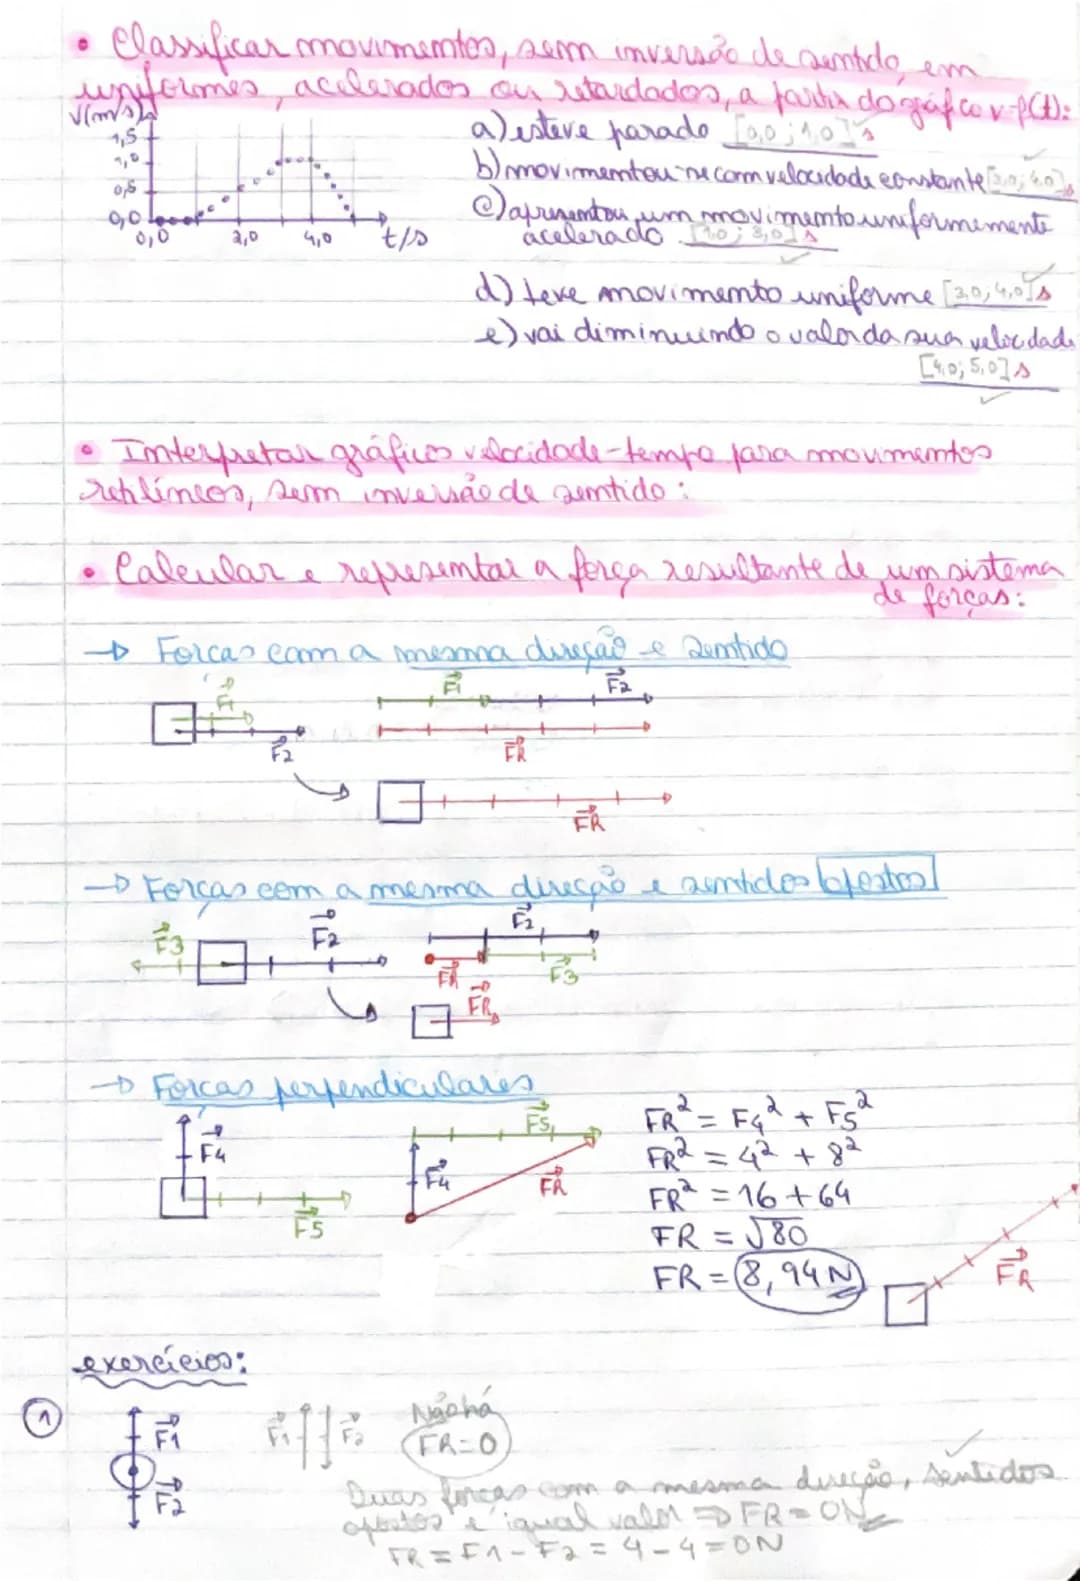 • Classificar movimentos, sem inversão de sentido, em
uniformes, acelerados ou retardados, a partir do gráfico v=f(t):
V(m/s)
1,5
1,0
0,5
0,0
0,0 2,0 4,0 t/s
a) esteve parado [0,0 ; 1,0] s
b) movimentou-se com velocidade constante [3,0; 4,0] s
c) apresentou um movimento uniformemente
acelerado [1,0 ; 3,0] s
d) teve movimento uniforme [3,0; 4,0] s
e) vai diminuindo o valor da sua velocidade
[4,0; 5,0] s
• Interpretar gráficos velocidade-tempo para movimentos
retilíneos, sem inversão de sentido:
• Calcular e representar a força resultante de um sistema
de forças:
→ Forças com a mesma direção e sentido
F1
F2
F1 F2
FR
FR
→ Forças com a mesma direção e sentidos opostos
F3 F2
F2
FR F3
FR
→ Forças perpendiculares
F4
F5
F5
F4 FR
FR² = F4² + F5²
FR² = 4² + 8²
FR² = 16 + 64
FR = √80
FR = 8,94 N
FR
exercícios:
1
F1
F2
F1 F2
Não há
FR = 0
Duas forças com a mesma direção, sentidos
opostos e igual valor ⇒ FR = 0N
FR = F1 - F2 = 4 - 4 = 0N